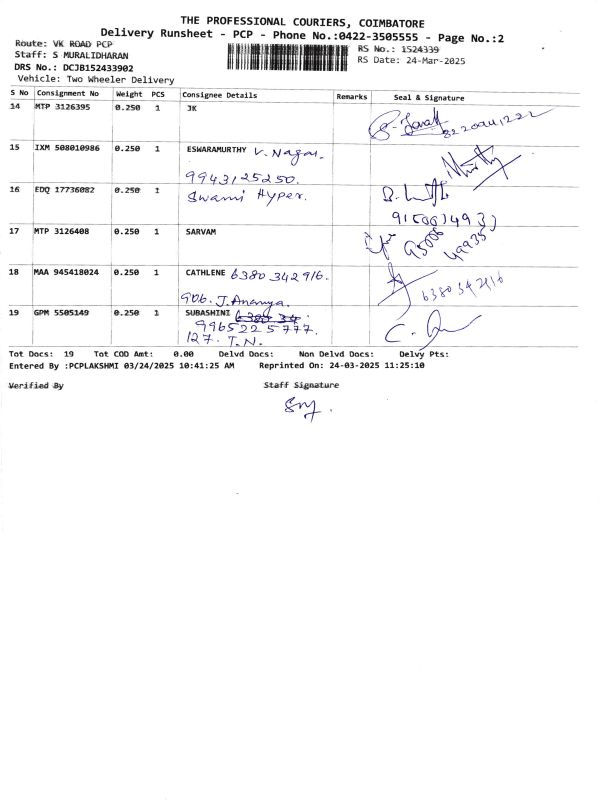 THE PROFESSIONAL COURIERS, COIMBATORE
Delivery Runsheet - PCP - Phone No.:0422-3505555 - Page No.:2
Route: VK ROAD PCP RS No.: 1524339
Staff: S MURALIDHARAN RS Date: 24-Mar-2025
DRS No.: DCJB152433902
Vehicle: Two Wheeler Delivery
S No Consignment No Weight PCS Consignee Details Remarks Seal & Signature
14 MTP 3126395 0.250 1 JK
15 IXM 508010986 0.250 1 ESWARAMURTHY V. Nagar.
9943125250.
16 EDQ 17736082 0.250 1 Swami Hyper.
17 MTP 3126408 0.250 1 SARVAM
95006
49935
18 MAA 945418024 0.250 1 CATHLENE 6380 342916.
906. J. Ananya.
6380342916
19 GPM 5505149 0.250 1 SUBASHINI
9965225777.
127. T.N.
Tot Docs: 19 Tot COD Amt: 0.00 Delvd Docs: Non Delvd Docs: Delvy Pts:
Entered By :PCPLAKSHMI 03/24/2025 10:41:25 AM Reprinted On: 24-03-2025 11:25:10
Verified By Staff Signature